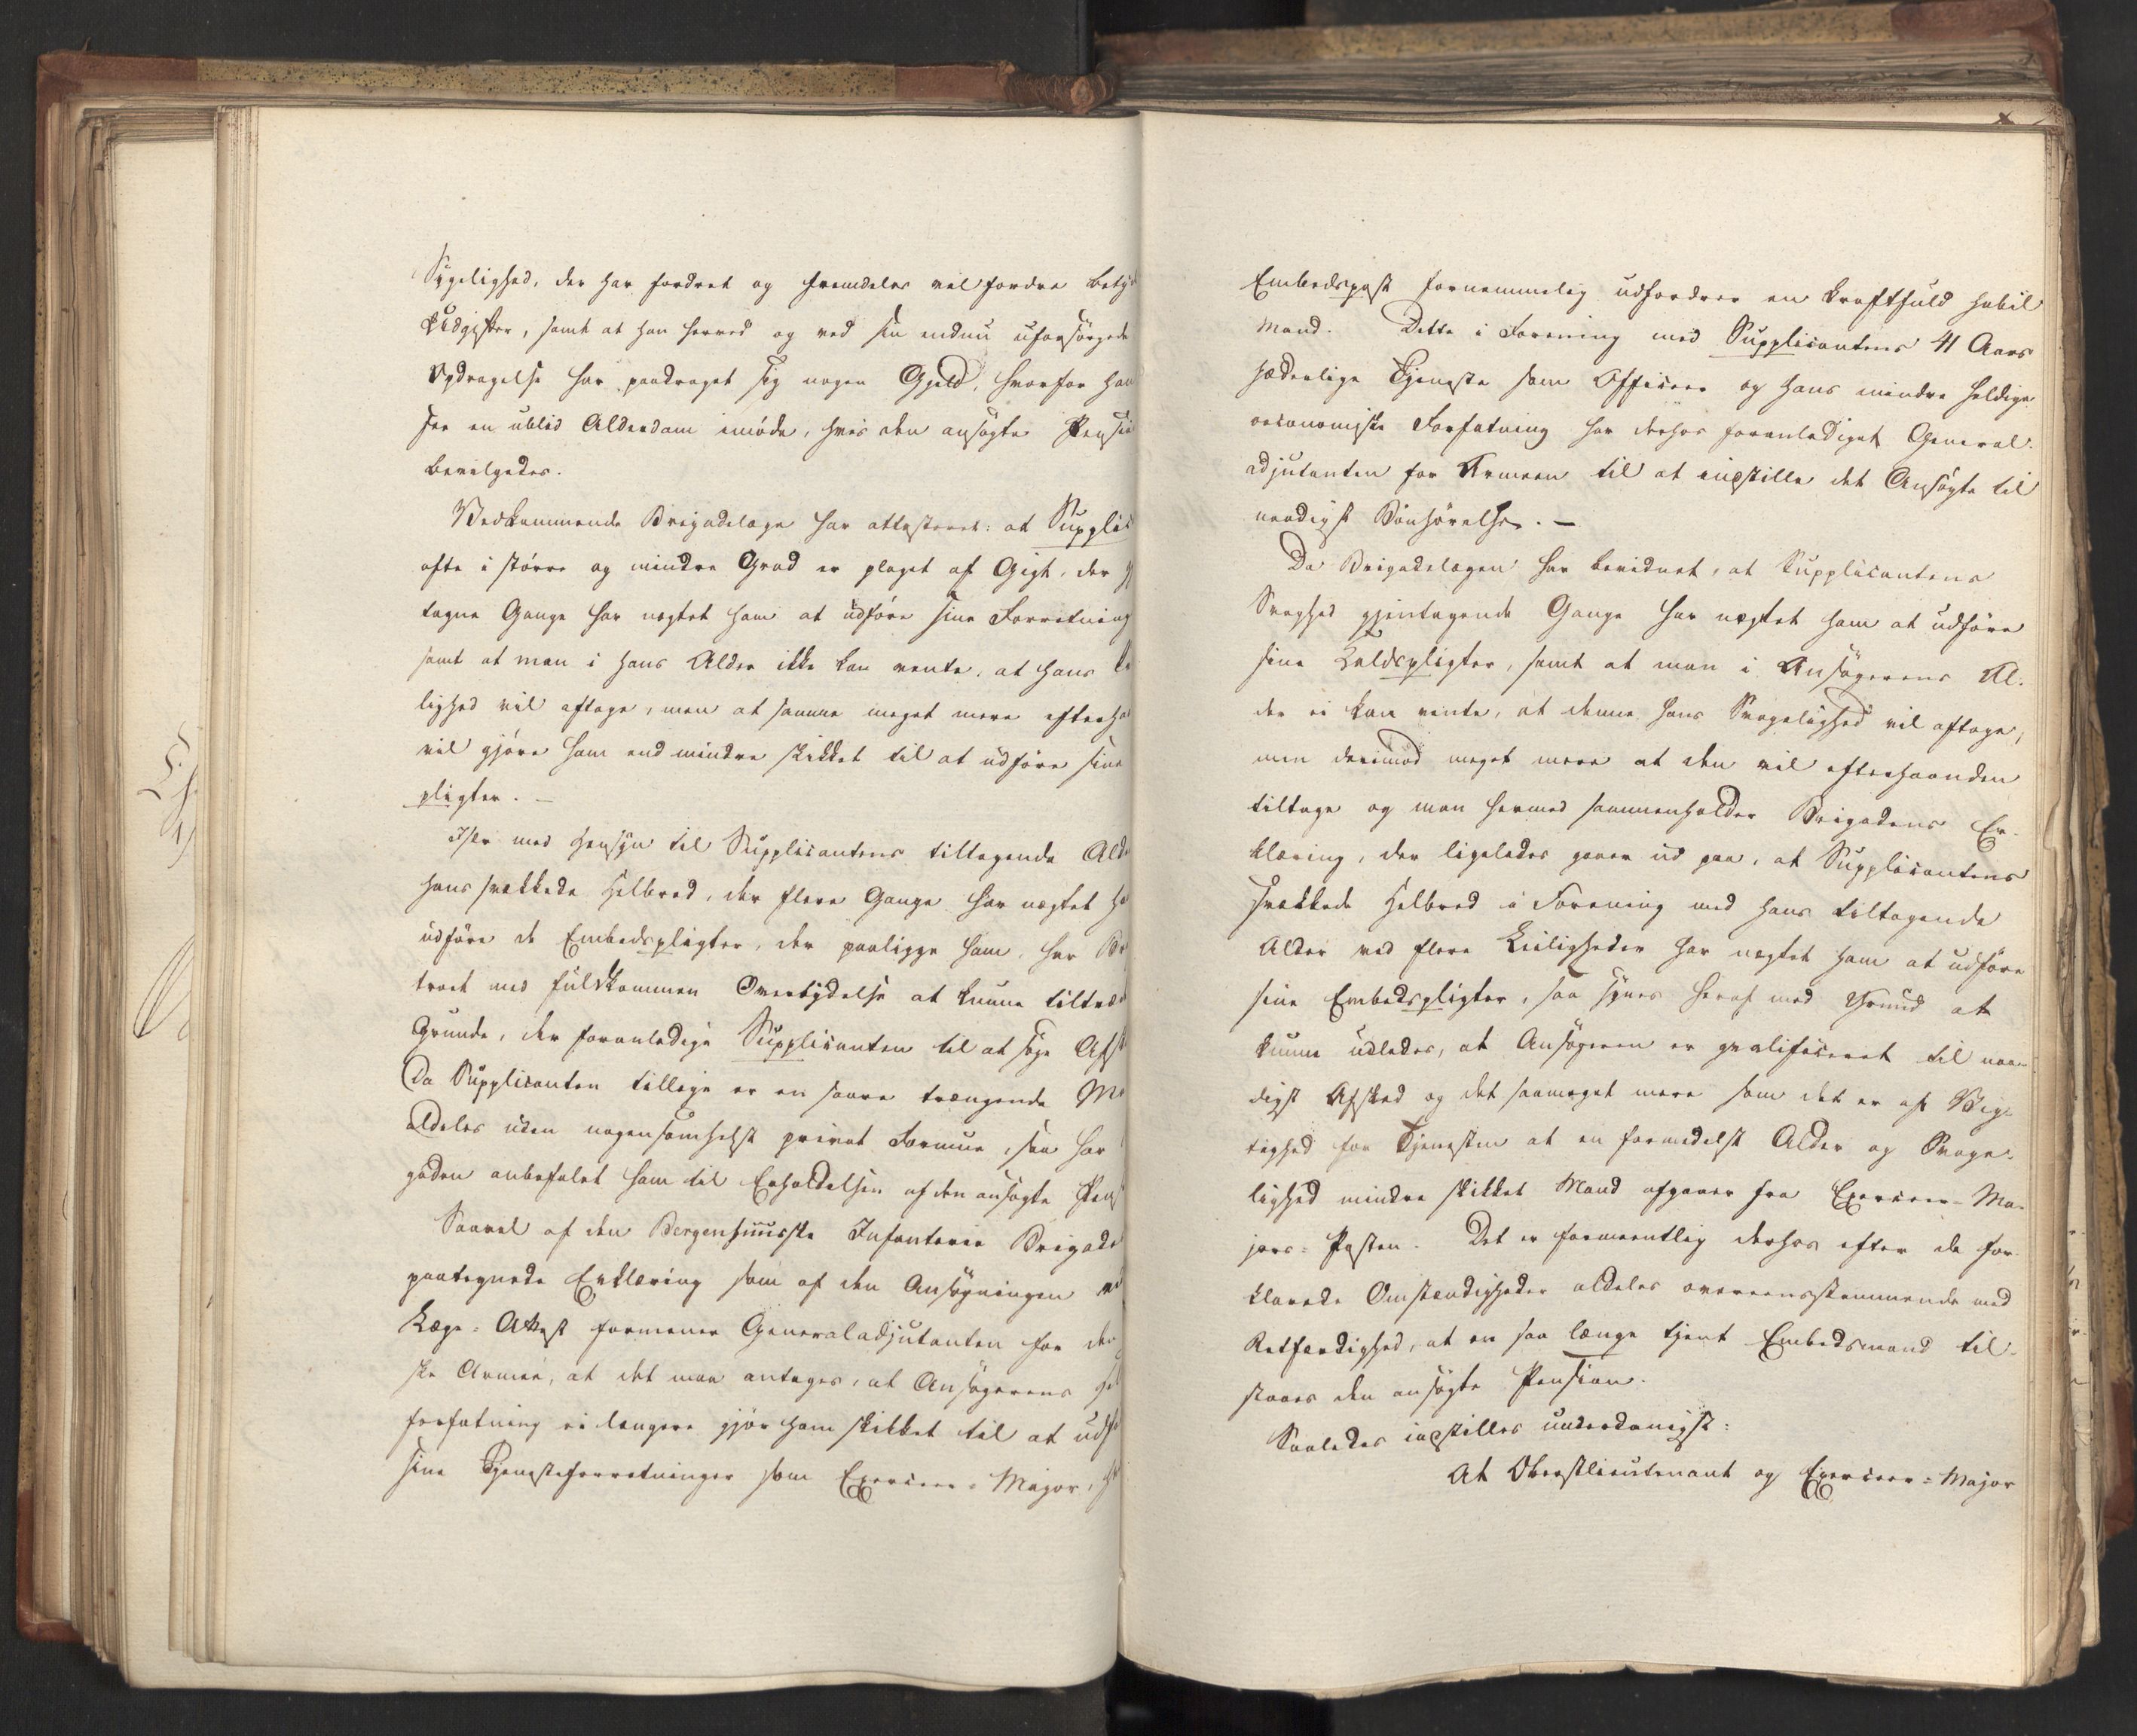 Sygelighed, der har fordret og fremdeles vil fordre bety
Udgifter, samt at han herved og ved sin endnu uforsørgede
Opdragelse har paadraget sig nogen Gjeld, hvorfor han
seer en ublid Alderdom imøde, hvis den ansøgte Pensio
bevilgedes.
Vedkommende Brigadelæge har attesteret: at Supplic
ofte i större og mindre Grad er plaget af Gigt, der gj
tagne Gange har nægtet ham at udföre sine Forretning
samt at man i hans Alder ikke kan vente, at hans
lighed vil aftage, men at samme meget mere efterha
vil gjöre ham end mindre skikket til at udföre sine
pligter. —
Især med Hensyn til Supplicantens tiltagende Alde
hans svækkede Helbred, der flere Gange har nægtet ha
udföre de Embedspligter, der paaligge ham, har Br
troet med fuldkommen Overbydelse at kunne tiltræd
Grunde, der foranledige Supplicanten til at søge Afsk
Da Supplicanten tillige er en saare trængende Ma
aldeles uden nogensomhelst privat Formue, saa har
gaden anbefalet ham til Erholdelsen af den ansøgte Pens
Saavel af den Bergenhuusske Infanterie Brigade
paategnede Erklæring som af den Ansøgningen ve
Læge-Attest formener Generaladjutanten for den
ske Armee, at det maa antages, at Ansøgerens Hel
forfatning ei længere gjör ham skikket til at udfö
sine Tjenesteforretninger som Exerceer-Major, h
Embedspost fornemmelig udfordrer en kraftfuld habil
Mand. Dette i Forening med Supplicantens 41 Aars
hæderlige Tjeneste som Officeer og hans mindre heldige
oeconomiske Forfatning har derhos foranlediget General-
adjutanten for Armeen til at indstille det Ansøgte til
naadigst Bönhörelse. —
Da Brigadelægen har bevidnet, at Supplicantens
Svaghed gjentagende Gange har nægtet ham at udföre
sine Kaldspligter, samt at man i Ansøgerens Al-
der ei kan vente, at denne hans Svagelighed vil aftage,
men derimod meget mere at den vil efterhaanden
tiltage og man hermed sammenholder Brigadens Er-
klæring, der ligeledes gaaer ud paa, at Supplicantens
svækkede Helbred i Forening med hans tiltagende
Alder ved flere Leiligheder har nægtet ham at udföre
sine Embedspligter, saa synes heraf med Grund at
kunne udledes, at Ansøgeren er qvalificeret til naa-
digst Afsked og det saameget mere som det er af Vig-
tighed for Tjenesten at en formedelst Alder og Svage-
lighed mindre skikket Mand afgaaer fra Exerceer-Ma-
jors-Posten. Det er formeentlig derhos efter de for-
klarede Omstændigheder aldeles overeensstemmende med
Retfærdighed, at en saa længe tjent Embedsmand til-
staaes den ansøgte Pension.
Saaledes indstilles underdanigst:
At Oberstlieutenant og Exerceer-Major